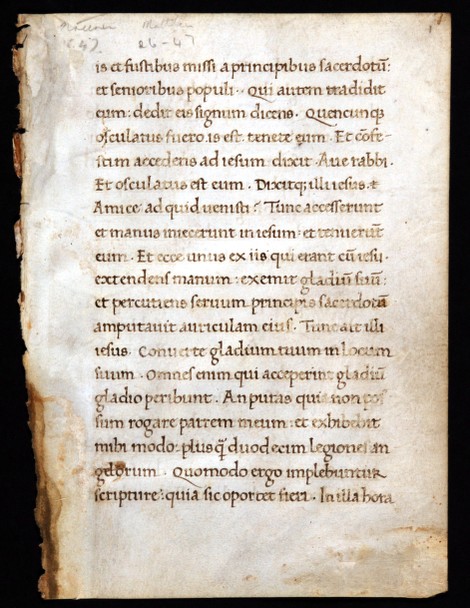 Matthew
26-47
is et fustibus missi a principibus sacerdotū:
et senioribus populi. Qui autem tradidit
eum: dedit eis signum dicens. Quencunq;
osculatus fuero. is est. tenete eum. Et cōfe-
stim accedens ad iesum. dixit. Aue rabbi.
Et osculatus est eum. Dixitq; illi iesus.
Amice ad quid uenisti? Tunc accesserunt
et manus iniecerunt in iesum: et tenuerūt
eum. Et ecce unus ex iis qui erant cū iesu.
extendens manum: exemit gladiū suū:
et percutiens seruum principis sacerdotū
amputauit auriculam eius. Tunc ait illi
iesus. Conuerte gladium tuum in locum
suum. Omnes enim qui acceperint gladiū
gladio peribunt. An putas quia non pos
sum rogare patrem meum: et exhibebit
mihi modo: plus q̄ duodecim legiones an
gelorum. Quomodo ergo implebuntur
scripture: quia sic oportet fieri. In illa hora